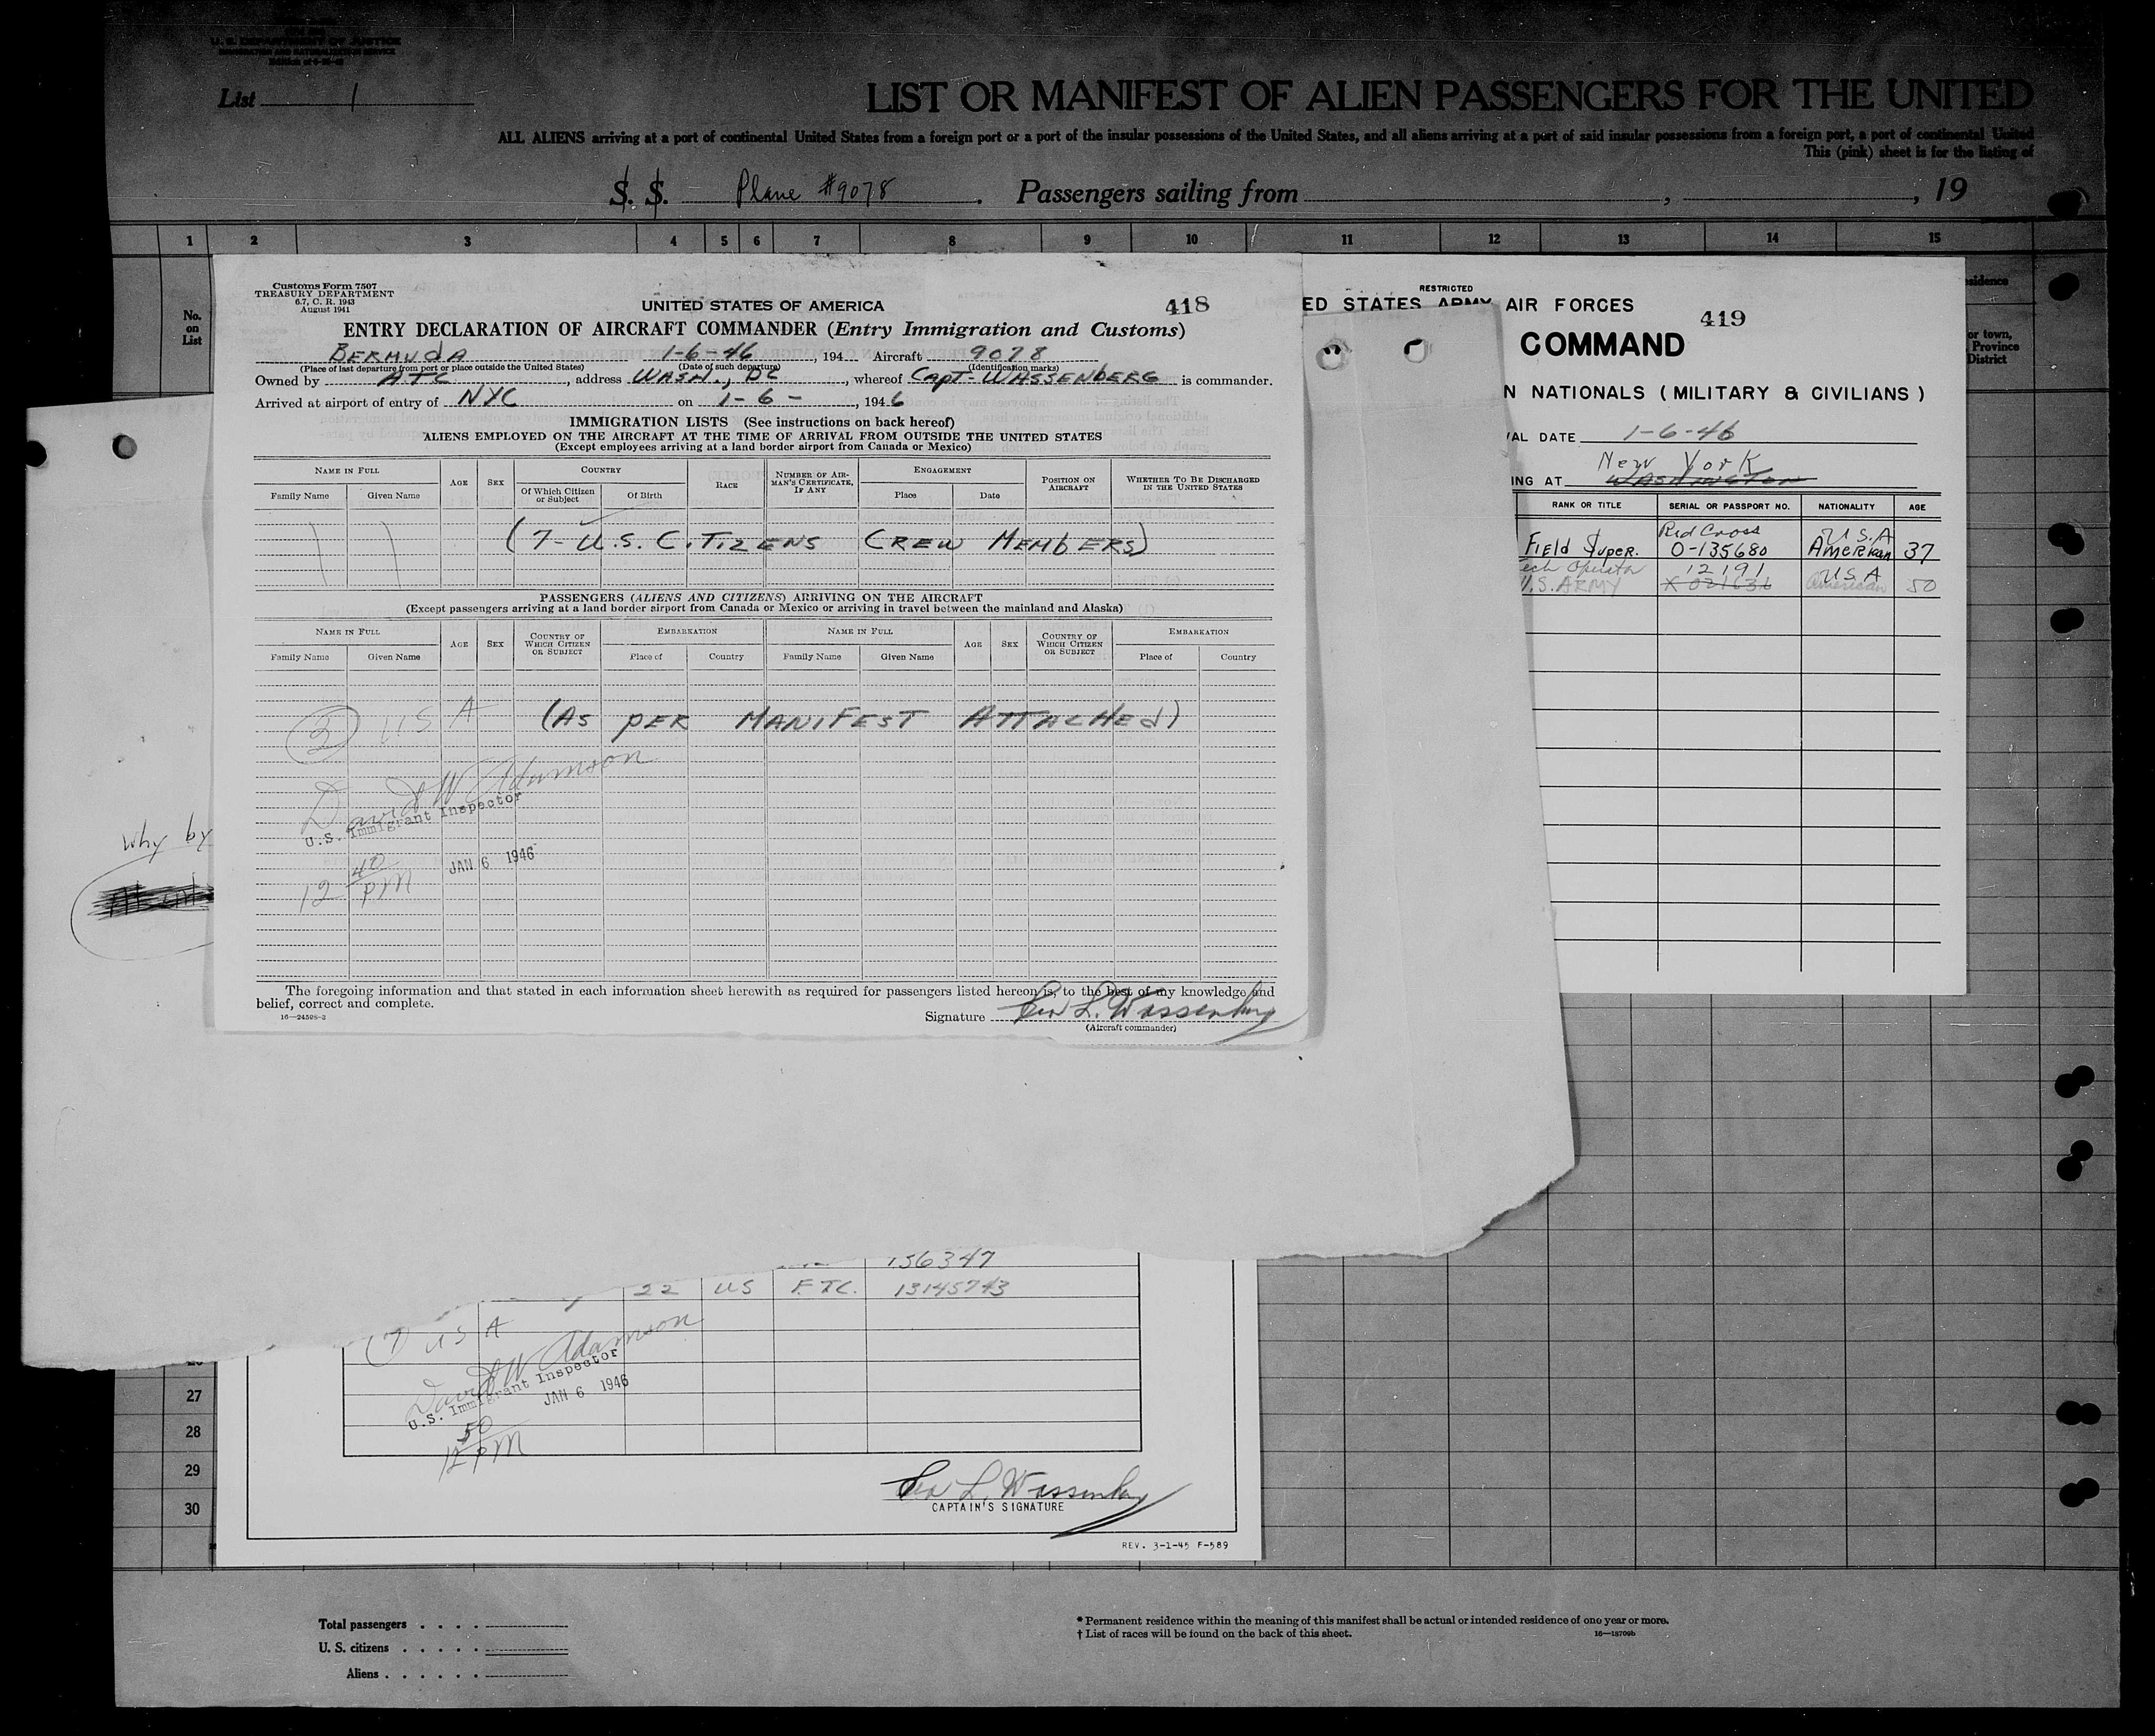 U. S. DEPARTMENT OF JUSTICE
IMMIGRATION AND NATURALIZATION SERVICE
List 1
LIST OR MANIFEST OF ALIEN PASSENGERS FOR THE UNITED
ALL ALIENS arriving at a port of continental United States from a foreign port or a port of the insular possessions of the United States, and all aliens arriving at a port of said insular possessions from a foreign port, a port of continental United
This (pink) sheet is for the listing of
S. S. Plane #9078. Passengers sailing from , , 19
1 2 3 4 5 6 7 8 9 10 11 12 13 14 15
No. on List
sidence
or town,
Province
District
Customs Form 7507
TREASURY DEPARTMENT
6.7, C. R. 1943
August 1941
UNITED STATES OF AMERICA
418
ENTRY DECLARATION OF AIRCRAFT COMMANDER (Entry Immigration and Customs)
BERMUDA 1-6-46, 194 Aircraft 9078
(Place of last departure from port or place outside the United States) (Date of such departure) (Identification marks)
Owned by ATC, address WASH., DC, whereof Capt- WASSENBERG is commander.
Arrived at airport of entry of NYC on 1-6-, 1946
IMMIGRATION LISTS (See instructions on back hereof)
ALIENS EMPLOYED ON THE AIRCRAFT AT THE TIME OF ARRIVAL FROM OUTSIDE THE UNITED STATES
(Except employees arriving at a land border airport from Canada or Mexico)
NAME IN FULL AGE SEX COUNTRY RACE NUMBER OF AIRMAN'S CERTIFICATE, IF ANY ENGAGEMENT POSITION ON AIRCRAFT WHETHER TO BE DISCHARGED IN THE UNITED STATES
Family Name Given Name Of Which Citizen or Subject Of Birth Place Date
(7- U.S. CITIZENS CREW MEMBERS)
PASSENGERS (ALIENS AND CITIZENS) ARRIVING ON THE AIRCRAFT
(Except passengers arriving at a land border airport from Canada or Mexico or arriving in travel between the mainland and Alaska)
NAME IN FULL AGE SEX COUNTRY OF WHICH CITIZEN OR SUBJECT EMBARKATION NAME IN FULL AGE SEX COUNTRY OF WHICH CITIZEN OR SUBJECT EMBARKATION
Family Name Given Name Place of Country Family Name Given Name Place of Country
USA (AS PER MANIFEST ATTACHED)
David W Adamson
U.S. Immigrant Inspector
12 40 PM JAN 6 1946
The foregoing information and that stated in each information sheet herewith as required for passengers listed hereon is, to the best of my knowledge and
belief, correct and complete.
16—24598-3
Signature Geo L. Wassenberg
(Aircraft commander)
RESTRICTED
ED STATES ARMY AIR FORCES
419
COMMAND
N NATIONALS (MILITARY & CIVILIANS)
AL DATE 1-6-46
New York
ING AT WASHINGTON
RANK OR TITLE SERIAL OR PASSPORT NO. NATIONALITY AGE
Red Cross U S.A
Field Super. O-135680 American 37
ech Operator 12191 U S A
U.S. ARMY X 021631 American 50
Why by
156347
22 US F.TC. 13145743
(7) USA
David W Adamson
U.S. Immigrant Inspector
JAN 6 1946
50
12 PM
Geo L. Wassenberg
CAPTAIN'S SIGNATURE
REV. 3-1-45 F-589
27
28
29
30
Total passengers . . . .
U. S. citizens . . . . .
Aliens . . . . . .
* Permanent residence within the meaning of this manifest shall be actual or intended residence of one year or more.
† List of races will be found on the back of this sheet.
16—18709b